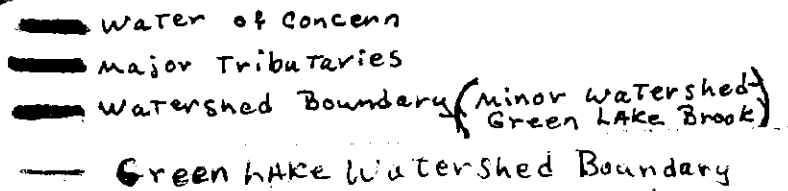 Water of Concern
Major Tributaries
Watershed Boundary (Minor Watershed-
Green LAKe Brook)
Green LAKe Watershed Boundary